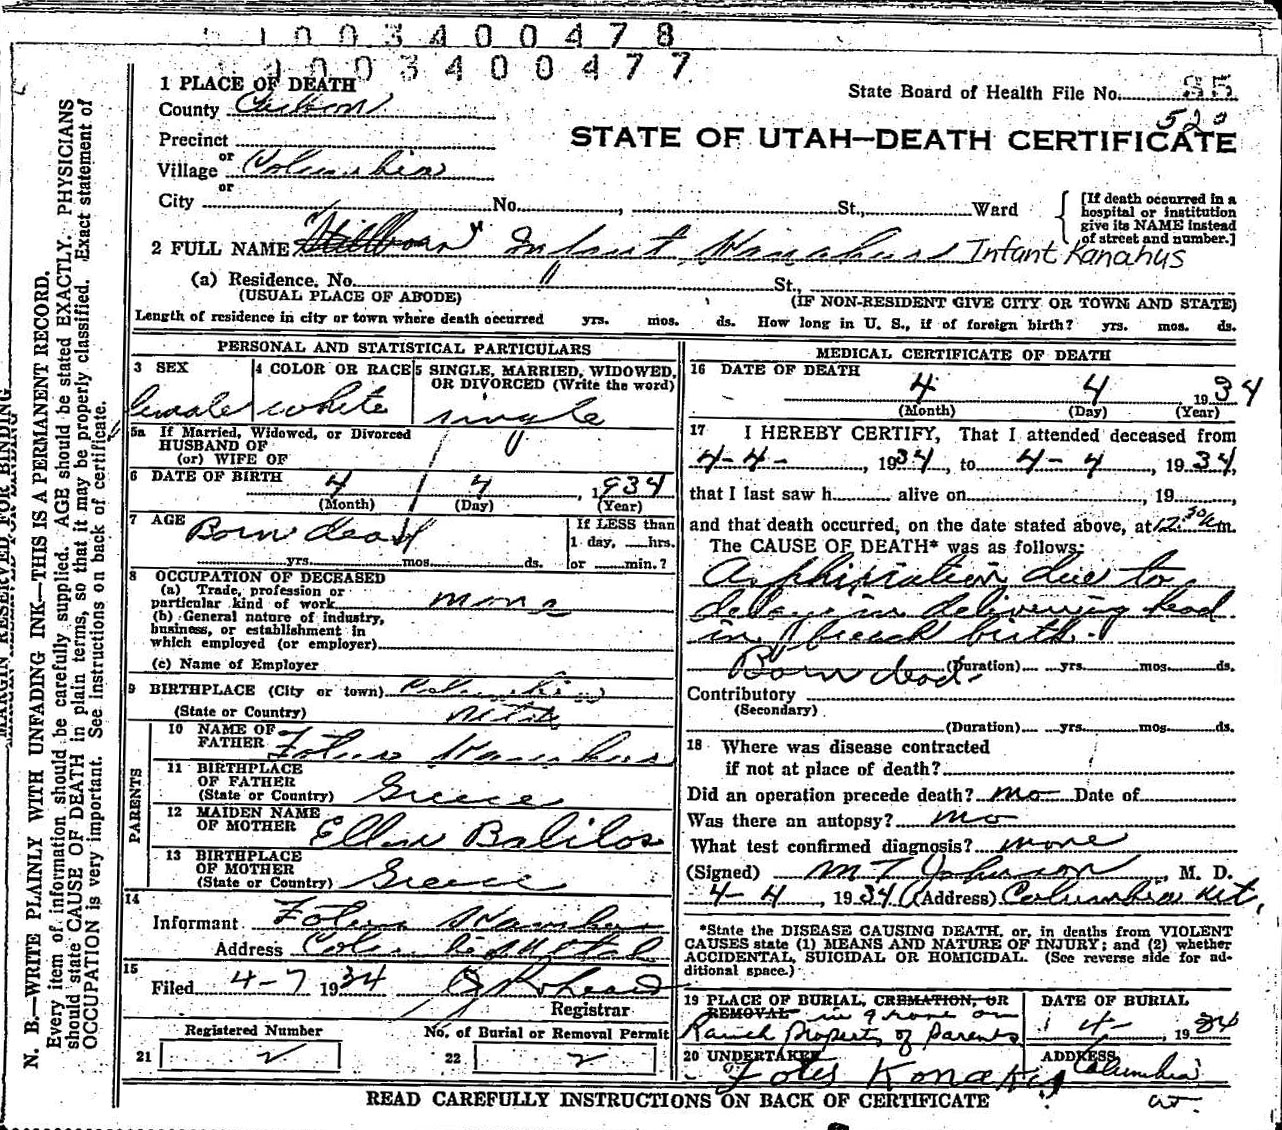 1 0 0 3 4 0 0 4 7 8
1 0 0 3 4 0 0 4 7 7
1 PLACE OF DEATH
County Carbon
State Board of Health File No. 35
520
Precinct
STATE OF UTAH—DEATH CERTIFICATE
or
Village Columbia
or
City No. , St., Ward
[If death occurred in a
hospital or institution
give its NAME instead
of street and number.]
2 FULL NAME Stillborn Infant Infant Kanahus
(a) Residence. No. St.,
(USUAL PLACE OF ABODE) (IF NON-RESIDENT GIVE CITY OR TOWN AND STATE)
Length of residence in city or town where death occurred yrs. mos. ds. How long in U. S., if of foreign birth? yrs. mos. ds.
PERSONAL AND STATISTICAL PARTICULARS
3 SEX female
4 COLOR OR RACE white
5 SINGLE, MARRIED, WIDOWED,
OR DIVORCED (Write the word)
single
5a If Married, Widowed, or Divorced
HUSBAND OF
(or) WIFE OF
6 DATE OF BIRTH 4 4 , 1934
(Month) (Day) (Year)
7 AGE Born dead
yrs. mos. ds.
If LESS than
1 day, hrs.
or min.?
8 OCCUPATION OF DECEASED
(a) Trade, profession or
particular kind of work none
(b) General nature of industry,
business, or establishment in
which employed (or employer)
(c) Name of Employer
9 BIRTHPLACE (City or town) Columbia
(State or Country) Utah
PARENTS
10 NAME OF
FATHER
11 BIRTHPLACE
OF FATHER
(State or Country) Greece
12 MAIDEN NAME
OF MOTHER Ellen Balilos
13 BIRTHPLACE
OF MOTHER
(State or Country) Greece
14
Informant
Address Columbia Utah
15
Filed 4-7 1934
Registrar
Registered Number No. of Burial or Removal Permit
21 2 22 2
MEDICAL CERTIFICATE OF DEATH
16 DATE OF DEATH
4 4 , 1934
(Month) (Day) (Year)
17 I HEREBY CERTIFY, That I attended deceased from
4-4- , 1934, to 4-4 , 1934,
that I last saw h alive on , 19 ,
and that death occurred, on the date stated above, at 12:30 m.
The CAUSE OF DEATH* was as follows:
Asphixiation due to
delay in delivering head
in breech birth.
Born dead. (Duration) yrs. mos. ds.
Contributory
(Secondary)
(Duration) yrs. mos. ds.
18 Where was disease contracted
if not at place of death?
Did an operation precede death? no Date of
Was there an autopsy? no
What test confirmed diagnosis? none
(Signed) M T Johnson , M. D.
4-4 , 1934 (Address) Columbia Ut.
*State the DISEASE CAUSING DEATH, or, in deaths from VIOLENT
CAUSES state (1) MEANS AND NATURE OF INJURY; and (2) whether
ACCIDENTAL, SUICIDAL OR HOMICIDAL. (See reverse side for ad-
ditional space.)
19 PLACE OF BURIAL, CREMATION, OR
REMOVAL in grave on
Ranch Property of Parents
DATE OF BURIAL
4- 1934
20 UNDERTAKER
Fotes Konakis
ADDRESS
Columbia
ut.
READ CAREFULLY INSTRUCTIONS ON BACK OF CERTIFICATE
MARGIN RESERVED FOR BINDING
N. B.—WRITE PLAINLY WITH UNFADING INK—THIS IS A PERMANENT RECORD.
Every item of information should be carefully supplied. AGE should be stated EXACTLY. PHYSICIANS
should state CAUSE OF DEATH in plain terms, so that it may be properly classified. Exact statement of
OCCUPATION is very important. See instructions on back of certificate.